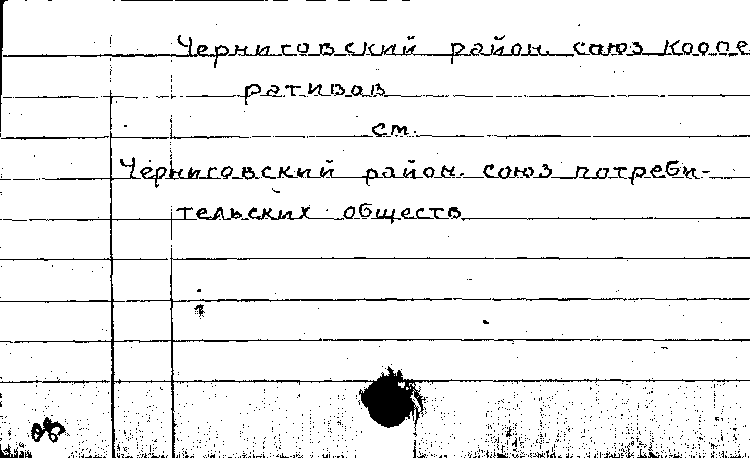 Черниговский район. союз коопе
ративов
см.
Черниговский район. союз потреби-
тельских обществ